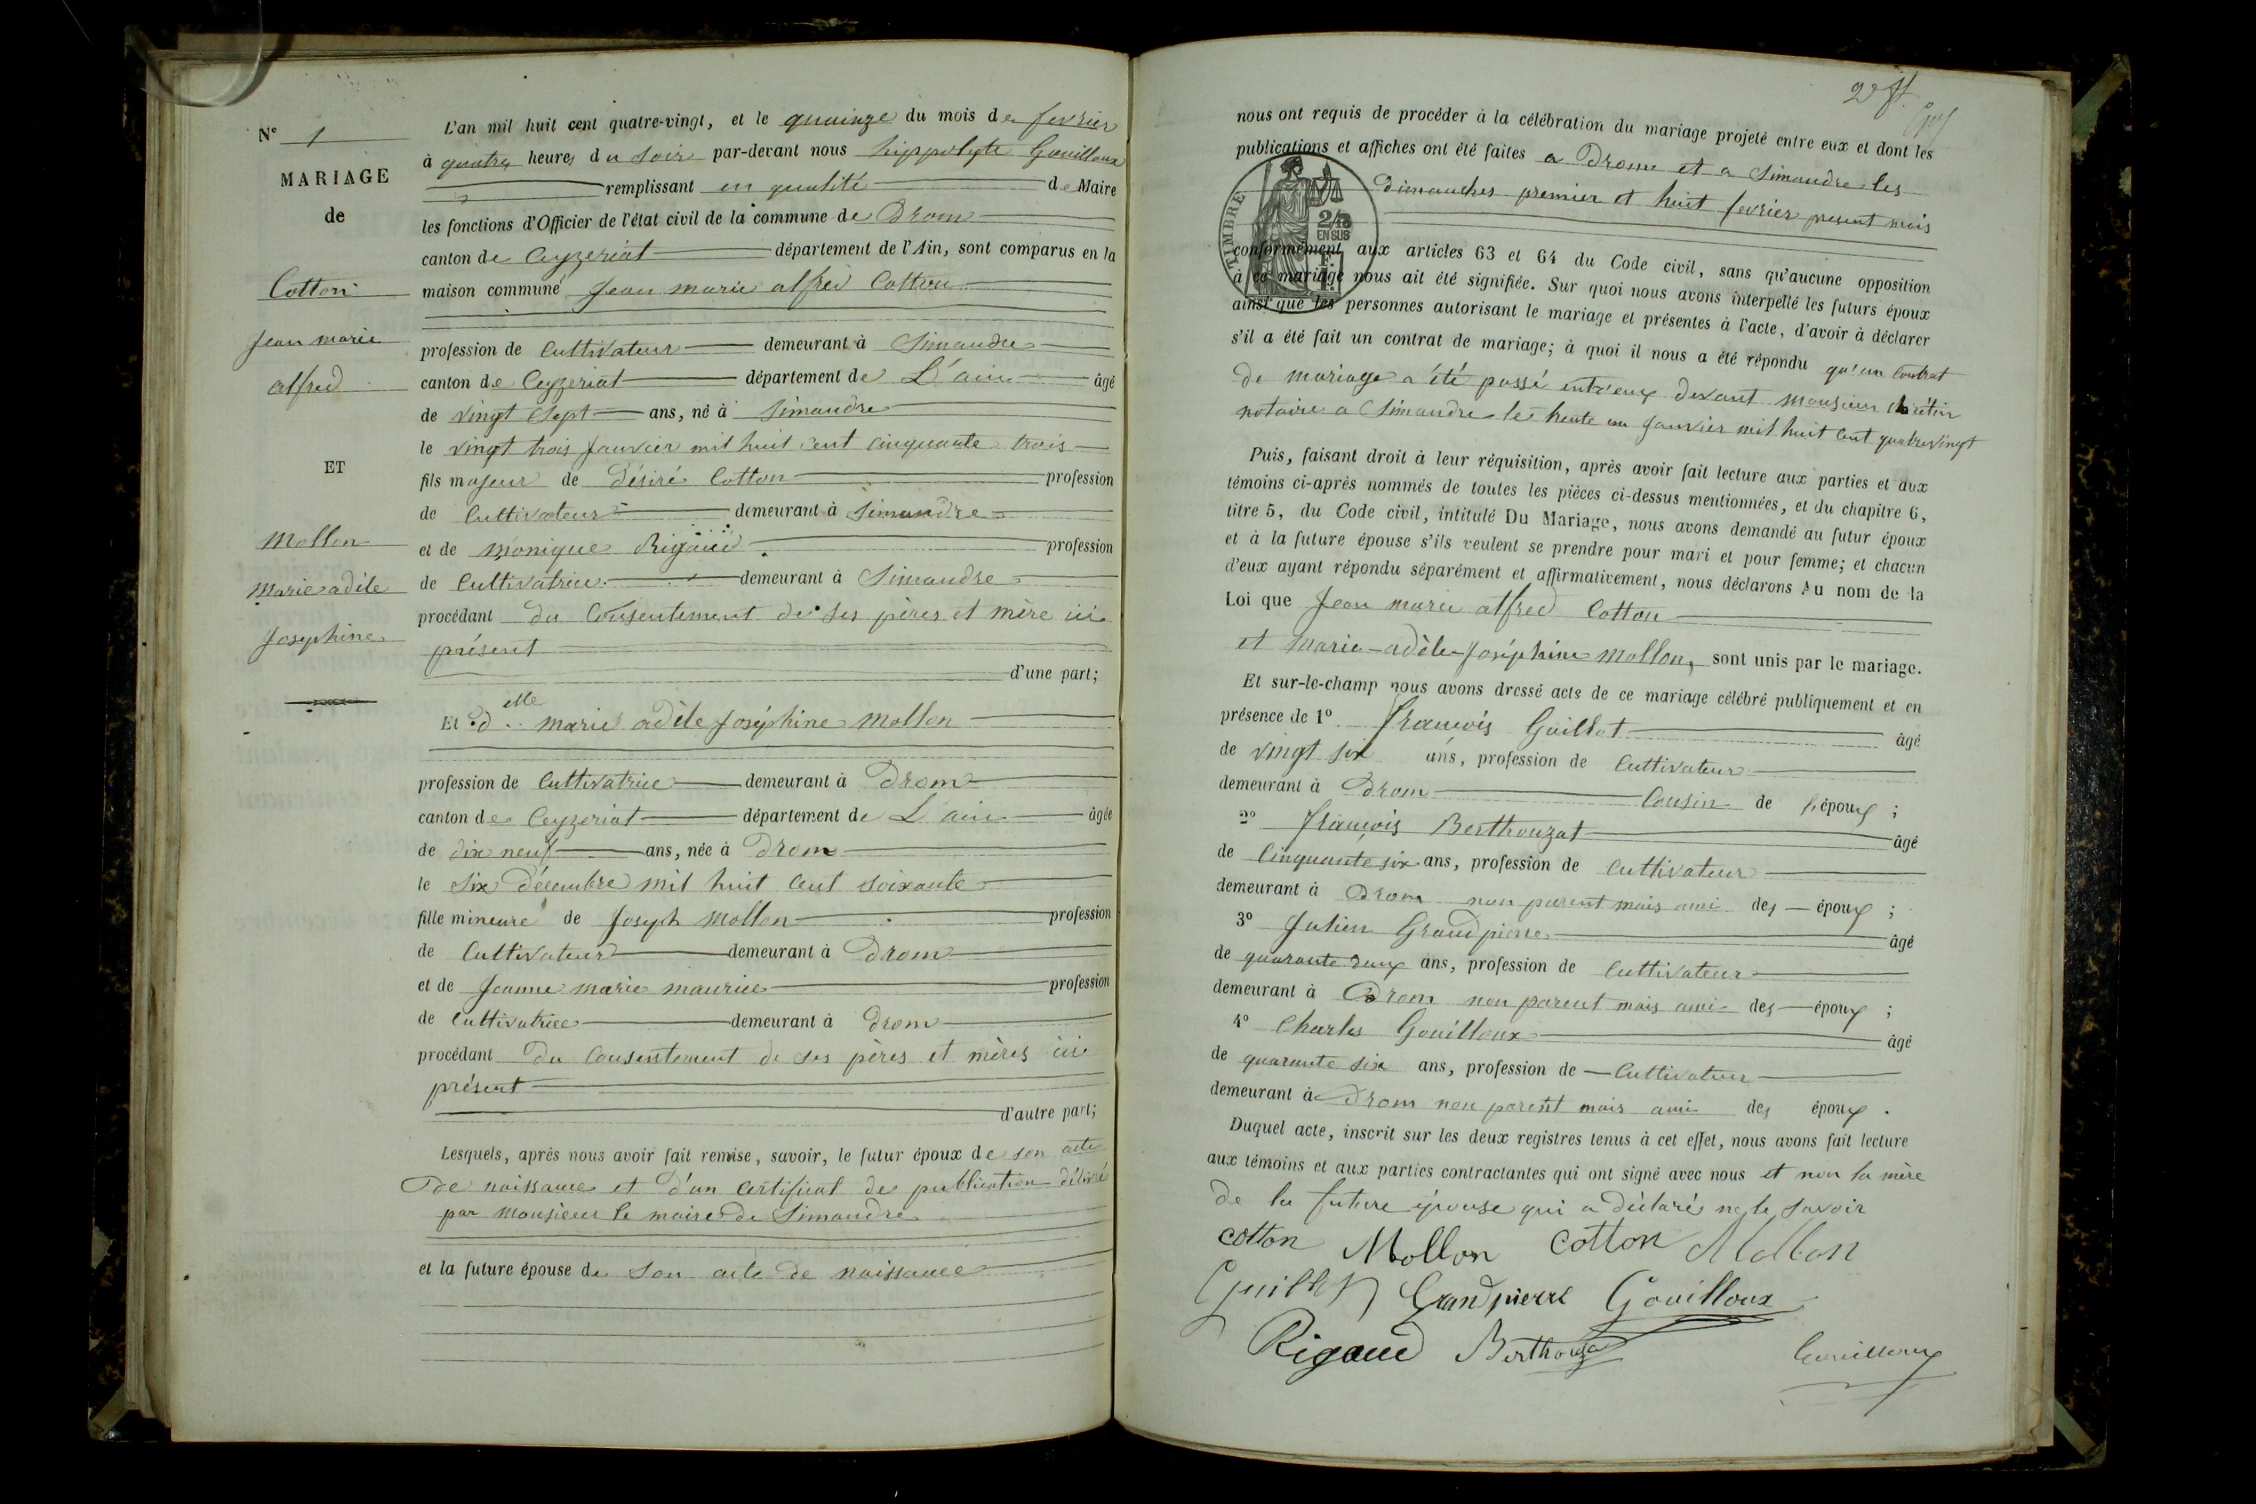 N° 1
MARIAGE
de
Cotton
Jean marie
alfred
ET
Mollon
Marie adèle
Joséphine
L'an mil huit cent quatre-vingt, et le quinze du mois de fevrier
à quatre heures du soir par-devant nous hippolyte Gouilloux
remplissant en qualité de Maire
les fonctions d'Officier de l'état civil de la commune de Drom
canton de Ceyzeriat département de l'Ain, sont comparus en la
maison commune Jean marie alfred Cotton
profession de Cultivateur demeurant à Simandre
canton de Ceyzeriat département de L'ain âgé
de vingt Sept ans, né à Simandre
le vingt trois Janvier mil huit cent cinquante trois
fils majeur de Désiré Cotton profession
de Cultivateur demeurant à Simandre
et de Monique Rigaud profession
de Cultivatrice demeurant à Simandre
procédant du Consentement de ses pères et mère ici
présent
d'une part;
Et delle marie adèle Joséphine Mollon
profession de Cultivatrice demeurant à Drom
canton de Ceyzeriat département de L'ain âgée
de dix neuf ans, née à Drom
le Six décembre mil huit Cent soixante
fille mineure de Joseph Mollon profession
de Cultivateur demeurant à Drom
et de Jeanne marie maurice profession
de Cultivatrice demeurant à Drom
procédant du Consentement de ses pères et mères ici
présent
d'autre part;
Lesquels, après nous avoir fait remise, savoir, le futur époux de son acte
de naissance et d'un Certificat de publication délivré
par monsieur le maire de Simandre
et la future épouse de son acte de naissance
nous ont requis de procéder à la célébration du mariage projeté entre eux et dont les
publications et affiches ont été faites a Drom et a Simandre les
Dimanches premier et huit fevrier present mois
TIMBRE
2/10
EN SUS
conformément aux articles 63 et 64 du Code civil, sans qu'aucune opposition
à ce mariage nous ait été signifiée. Sur quoi nous avons interpellé les futurs époux
ainsi que les personnes autorisant le mariage et présentes à l'acte, d'avoir à déclarer
s'il a été fait un contrat de mariage; à quoi il nous a été répondu qu'un Contrat
de mariage a été passé entr'eux devant monsieur
notaire a Simandre le trente un Janvier mil huit Cent quatre vingt
Puis, faisant droit à leur réquisition, après avoir fait lecture aux parties et aux
témoins ci-après nommés de toutes les pièces ci-dessus mentionnées, et du chapitre 6,
titre 5, du Code civil, intitulé Du Mariage, nous avons demandé au futur époux
et à la future épouse s'ils veulent se prendre pour mari et pour femme; et chacun
d'eux ayant répondu séparément et affirmativement, nous déclarons Au nom de la
Loi que Jean marie alfred Cotton
et Marie-adèle-Joséphine Mollon, sont unis par le mariage.
Et sur-le-champ nous avons dressé acte de ce mariage célébré publiquement et en
présence de 1° François Guillot âgé
de vingt six ans, profession de Cultivateur
demeurant à Drom Cousin de l'époux ;
2° François Berthouzat âgé
de Cinquante six ans, profession de Cultivateur
demeurant à Drom non parent mais ami des époux ;
3° Julien Grandpierre âgé
de quarante deux ans, profession de Cultivateur
demeurant à Drom non parent mais ami des époux ;
4° Charles Gouilloux âgé
de quarante six ans, profession de Cultivateur
demeurant à Drom non parent mais ami des époux.
Duquel acte, inscrit sur les deux registres tenus à cet effet, nous avons fait lecture
aux témoins et aux parties contractantes qui ont signé avec nous et non la mère
de la future épouse qui a déclaré ne le savoir
Cotton Mollon Cotton Mollon
Guillot Grandpierre Gouilloux
Rigaud Berthouzat Gouilloux